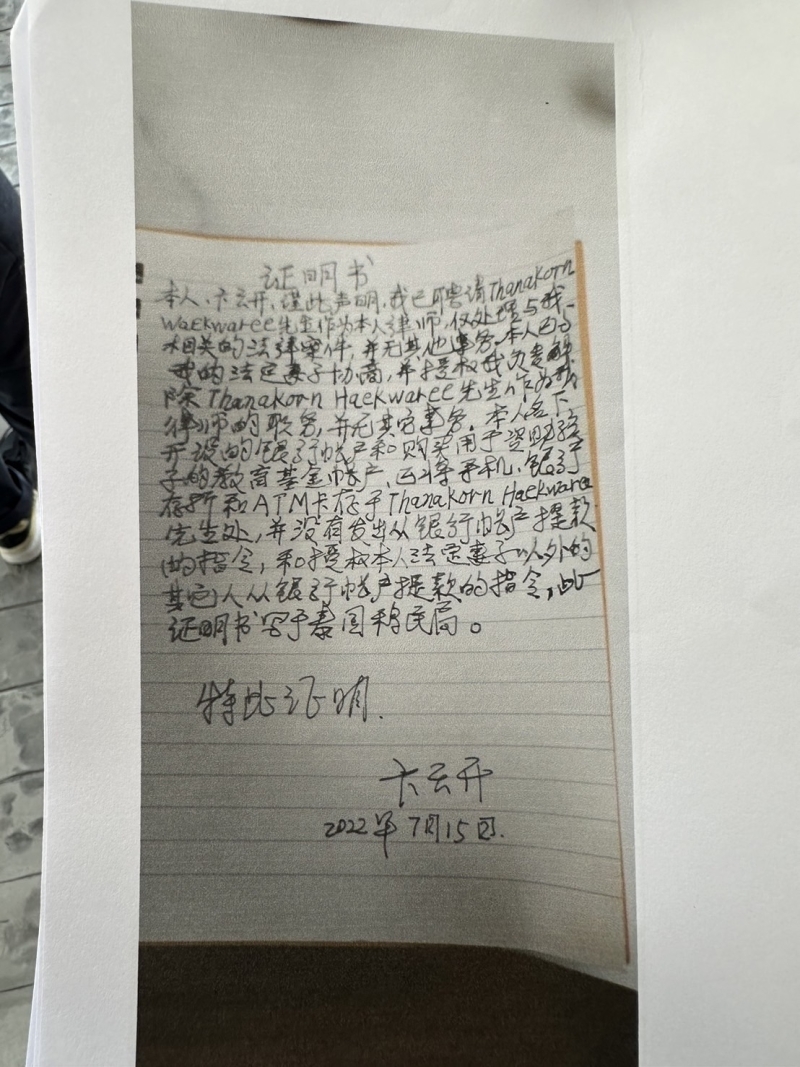 证明书
本人、卞云开、谨此声明，我已聘请Thanakorn
Waekwaree先生作为本人律师，仅处理与我
相关的法律案件，并无其他事务。本人已与
我的法定妻子协商，并授权我负责解
除Thanakorn Haekwaree先生作为我
律师的职务，并无其它事务。本人名下
开设的银行帐户和购买用于资助孩
子的教育基金帐户，包括手机，银行
存折和ATM卡存于Thanakorn Haekwaree
先生处，并没有发出从银行帐户提款
的指令，和授权本人法定妻子以外的
其它人从银行帐户提款的指令，此
证明书写于泰国移民局。
特此证明.
卞云开
2022年7月15日.